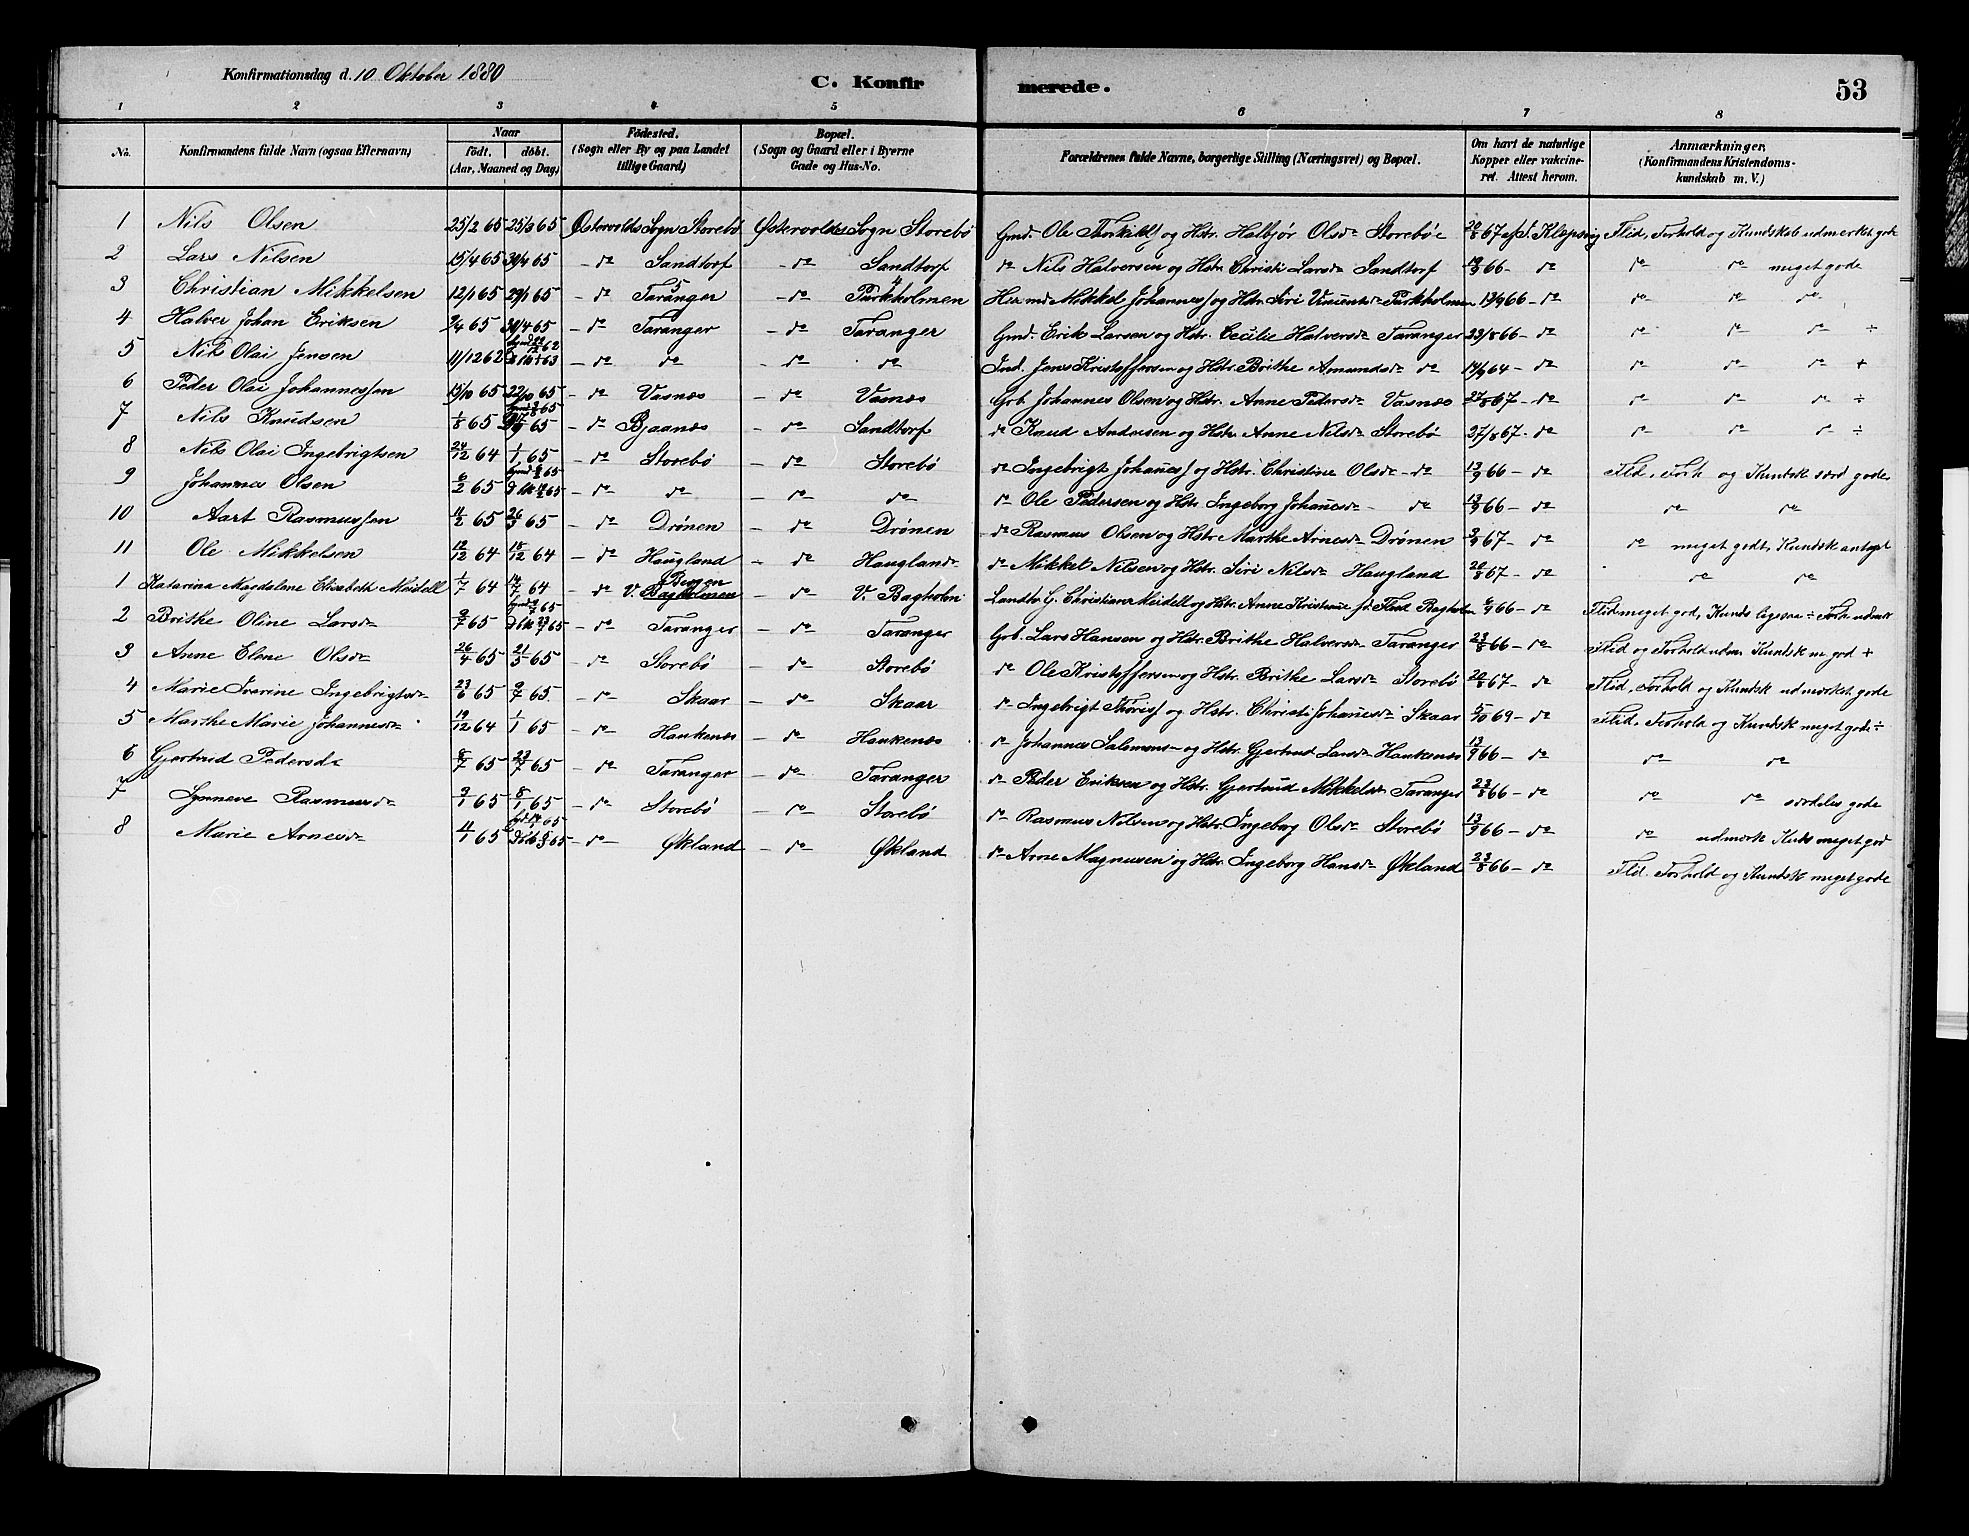 Konfirmationsdag d. 10 Oktober 1880
C. Konfir merede. 53
1 2 3 4 5 6 7 8
No. Konfirmandens fulde Navn (ogsaa Efternavn) Naar födt. döbt. (Aar, Maaned og Dag) Födested. (Sogn eller By og paa Landet tillige Gaard) Bopæl. (Sogn og Gaard eller i Byerne Gade og Hus-No. Forældrenes fulde Navne, borgerlige Stilling (Næringsvei) og Bopæl. Om havt de naturlige Kopper eller vakcineret. Attest herom. Anmærkninger. (Konfirmandens Kristendomskundskab m. V.)
1 Nils Olsen 25/2 65 25/3 65 Østervolds Sogn Storebø Østervolds Sogn Storebø Gmd. Ole Thorkilds og Hstr. Halbjør Olsdr Storebøe 20/8 67 af J. Klepsvig Flid, Forhold og Kundskab udmerket gode
2 Lars Nilsen 15/4 65 30/4 65 - do Sandtorf - do Sandtorf do Nils Halversen og Hstr Christi Larsdr Sandtorf 19/9 66 - do do do meget gode
3 Christian Mikkelsen 12/1 65 29/1 65 - do Taranger - do Purkholmen Huusmd Mikkel Johanness og Hstr. Siri Vincentsdr Purkholmen 13/9 66 - do do do do
4 Halver Johan Eriksen 9/4 65 30/4 65 - do Taranger - do Taranger Gmd. Erik Larsen og Hstr. Cecilie Halversdr Taranger 23/8 66 - do do do do ÷
5 Nils Olai Jensen 11/12 62 - do do - do do Ind. Jens Kristoffersen og Hstr. Brithe Amundsdr do 19/9 64 - do do do do +
6 Peder Olai Johannessen 15/10 65 22/10 65 - do Vasnæs - do Vasnæs Grb Johannes Olsen og Hstr. Anne Pedersdr Vasnæs 27/8 67 - do do do do ÷
7 Nils Knudsen 1/8 65 - do Bjaanæs - do Sandtorf do Knud Andersen og Hstr. Anne Nilsdr Storebø 27/8 67 - do do do do ÷
8 Nils Olai Ingebrigtsen 24/12 64 1/1 65 - do Storebø - do Storebø do Ingebrigt Johaness og Hstr. Christine Olsdr - do 13/9 66 - do Flid, Forh og Kundsk særd gode
9 Johannes Olsen 6/2 65 - do do - do do do Ole Pedersen og Hstr. Ingeborg Johanesdr - do 13/9 66 - do do do
10 Aart Rasmussen 11/2 65 26/3 65 - do Drönen - do Drönen do Rasmus Olsen og Hstr Marthe Arnesdr Drönen 3/9 67 - do do meget godt, Kundsk antagel
11 Ole Mikkelsen 12/12 64 18/12 64 - do Haugland - do Haugland do Mikkel Nilsen og Hstr. Siri Nilsdr Haugland 20/8 67 - do do do
1 Katarina Magdalene Elisabeth Meidell 1/7 64 14/7 64 - do V. Bagholmen Bergen - do V. Bagholm Landhr G. Christian Meidell og Hstr. Anne Kristine f. Bagholm 6/9 66 - do Flid meget god, Kunds ligesaa ÷ Forh udmær
2 Brithe Oline Larsdr 9/7 65 - do Taranger - do Taranger Grb. Lars Hansen og Hstr. Brithe Halversdr Taranger 23/8 66 - do Flid og Forhold udm. Kundsk m god +
3 Anne Elene Olsdr 26/4 65 21/5 65 - do Storebø - do Storebø do Ole Kristoffersen og Hstr. Brithe Larsdr Storebø 20/8 67 - do Flid, Forhold og Kundsk udmærket gode
4 Marie Iverine Ingebrigtsdr 23/6 65 9/7 65 - do Skaar - do Skaar do Ingebrigt Thöriss og Hstr. Christi Johanesdr Skaar 5/10 69 - do Flid, Forhold og Kundsk meget gode ÷
5 Marthe Marie Johannesdr 19/12 64 1/1 65 - do Haukenæs - do Haukenæs do Johannes Salemons- og Hstr. Gjertrud Larsdr Haukenæs 13/9 66 - do do do
6 Gjertrud Pedersdr 8/7 65 23/7 65 - do Taranger - do Taranger do Peder Eriksen og Hstr. Gjertrud Mikkelsdr Taranger 23/8 66 - do do do særdeles gode
7 Synneve Rasmusdr 3/1 65 8/1 65 - do Storebø - do Storebø do Rasmus Nilsen og Hstr. Ingeborg Olsdr Storebø 13/9 66 - do do udmærk Kuds meget god
8 Marie Arnesdr 11/1 65 - do Økland - do Økland do Arne Magnusen og Hstr. Ingeborg Hansdr Økland 23/8 66 - do Flid. Forhold og Kundsk meget gode